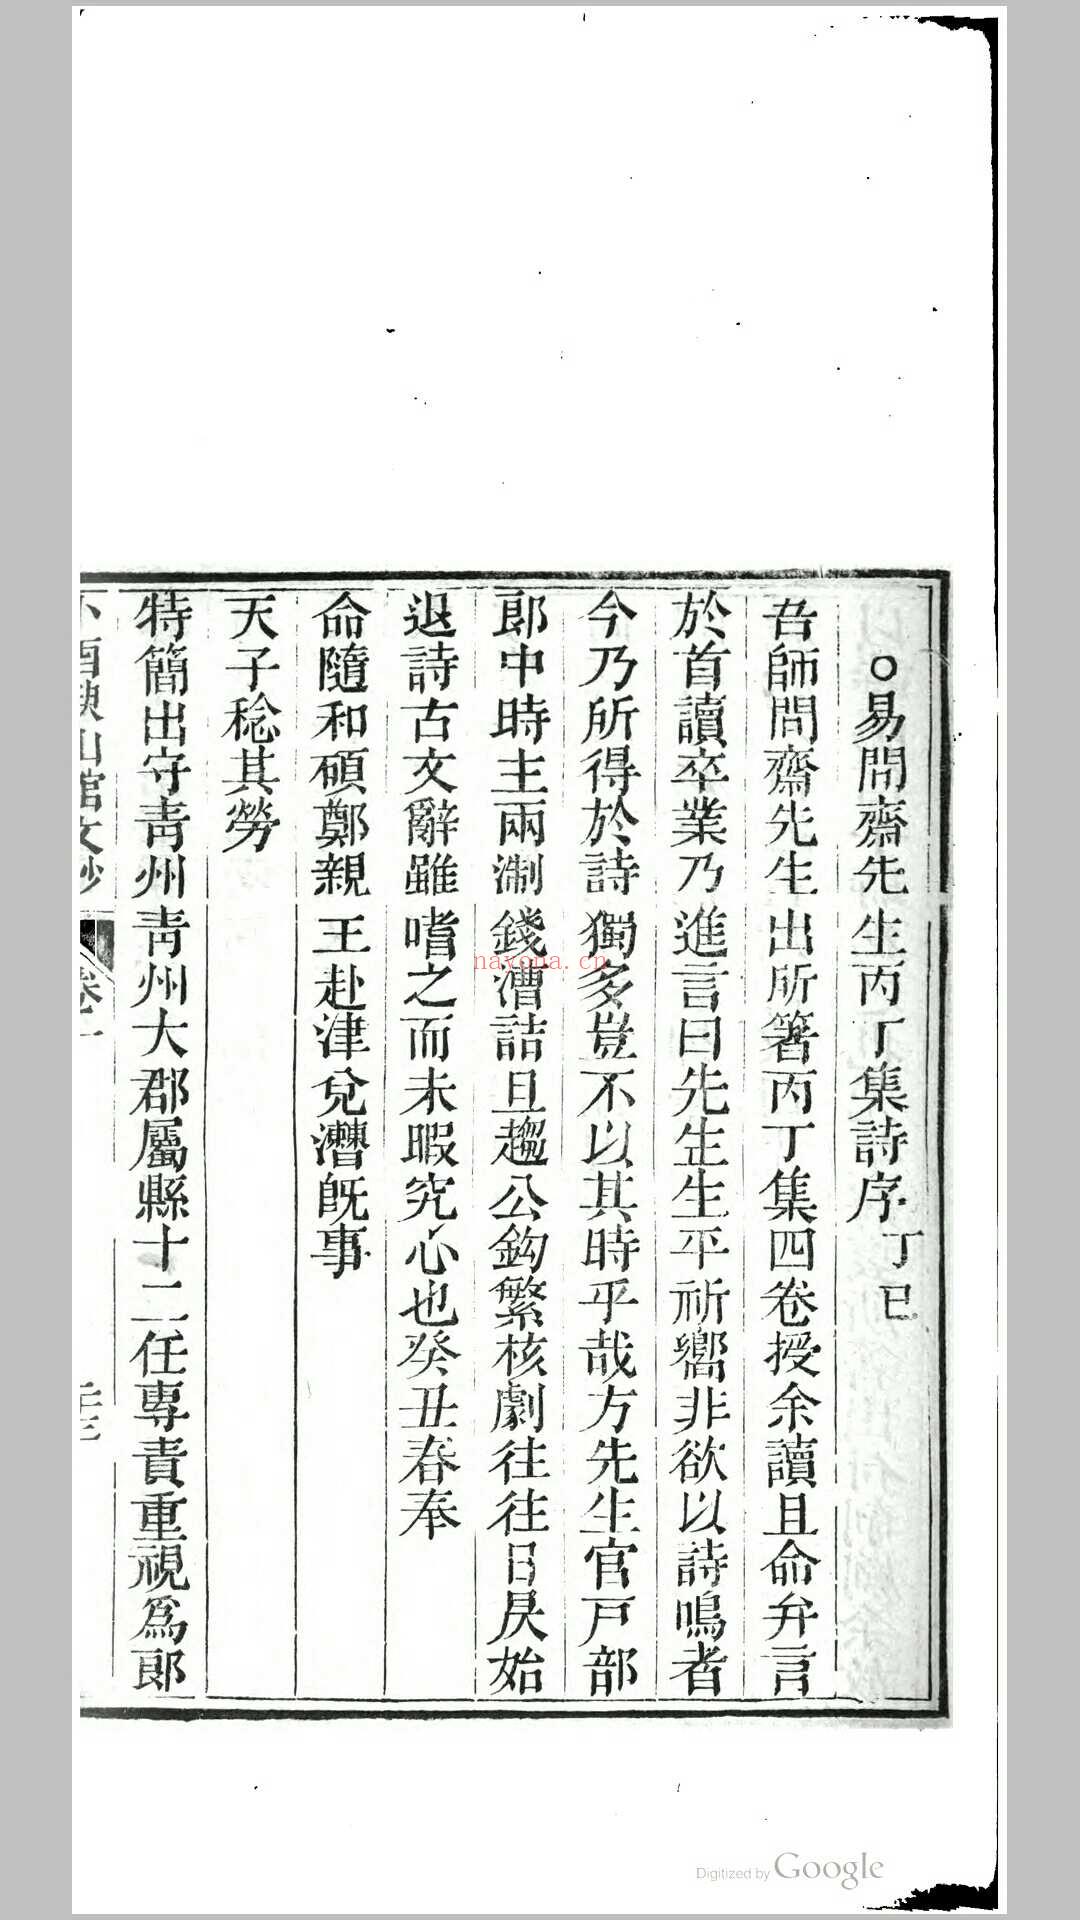 ○易問齋先生丙丁集詩序丁巳
吾師問齋先生出所箸丙丁集四卷授余讀且命弁言
於首讀卒業乃進言曰先生生平祈嚮非欲以詩鳴者
今乃所得於詩獨多豈不以其時乎哉方先生官戸部
郎中時主兩淛錢漕詰旦趨公鈎繁核劇往往日昃始
退詩古文辭雖嗜之而未暇究心也癸丑春奉
命隨和碩鄭親王赴津兌漕旣事
天子稔其勞
特簡出守青州青州大郡屬縣十二任專責重視爲郎
小酉腴山館文鈔
navona.cn
Digitized by Google